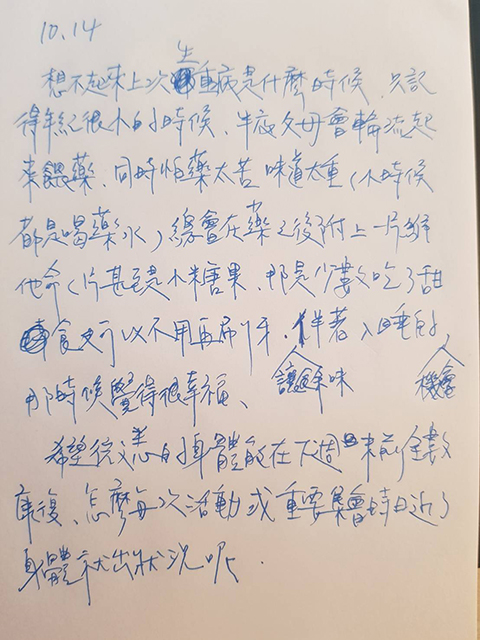 10.14
想不起來上次生重病是什麼時候，只記
得年紀很小的時候，半夜父母會輪流起
來餵藥，同時怕藥太苦味道太重（小時候
都是喝藥水）總會在藥之後附上一片維
他命C片甚至是小糖果，那是少數吃了甜
食文可以不用再刷牙，伴著讓餘味入睡的機會，
那時候覺得很幸福、
希望彼漾的身體能在下週末前全數
康復、怎麼每次活動或重要集會時日近了
身體就出狀況呢